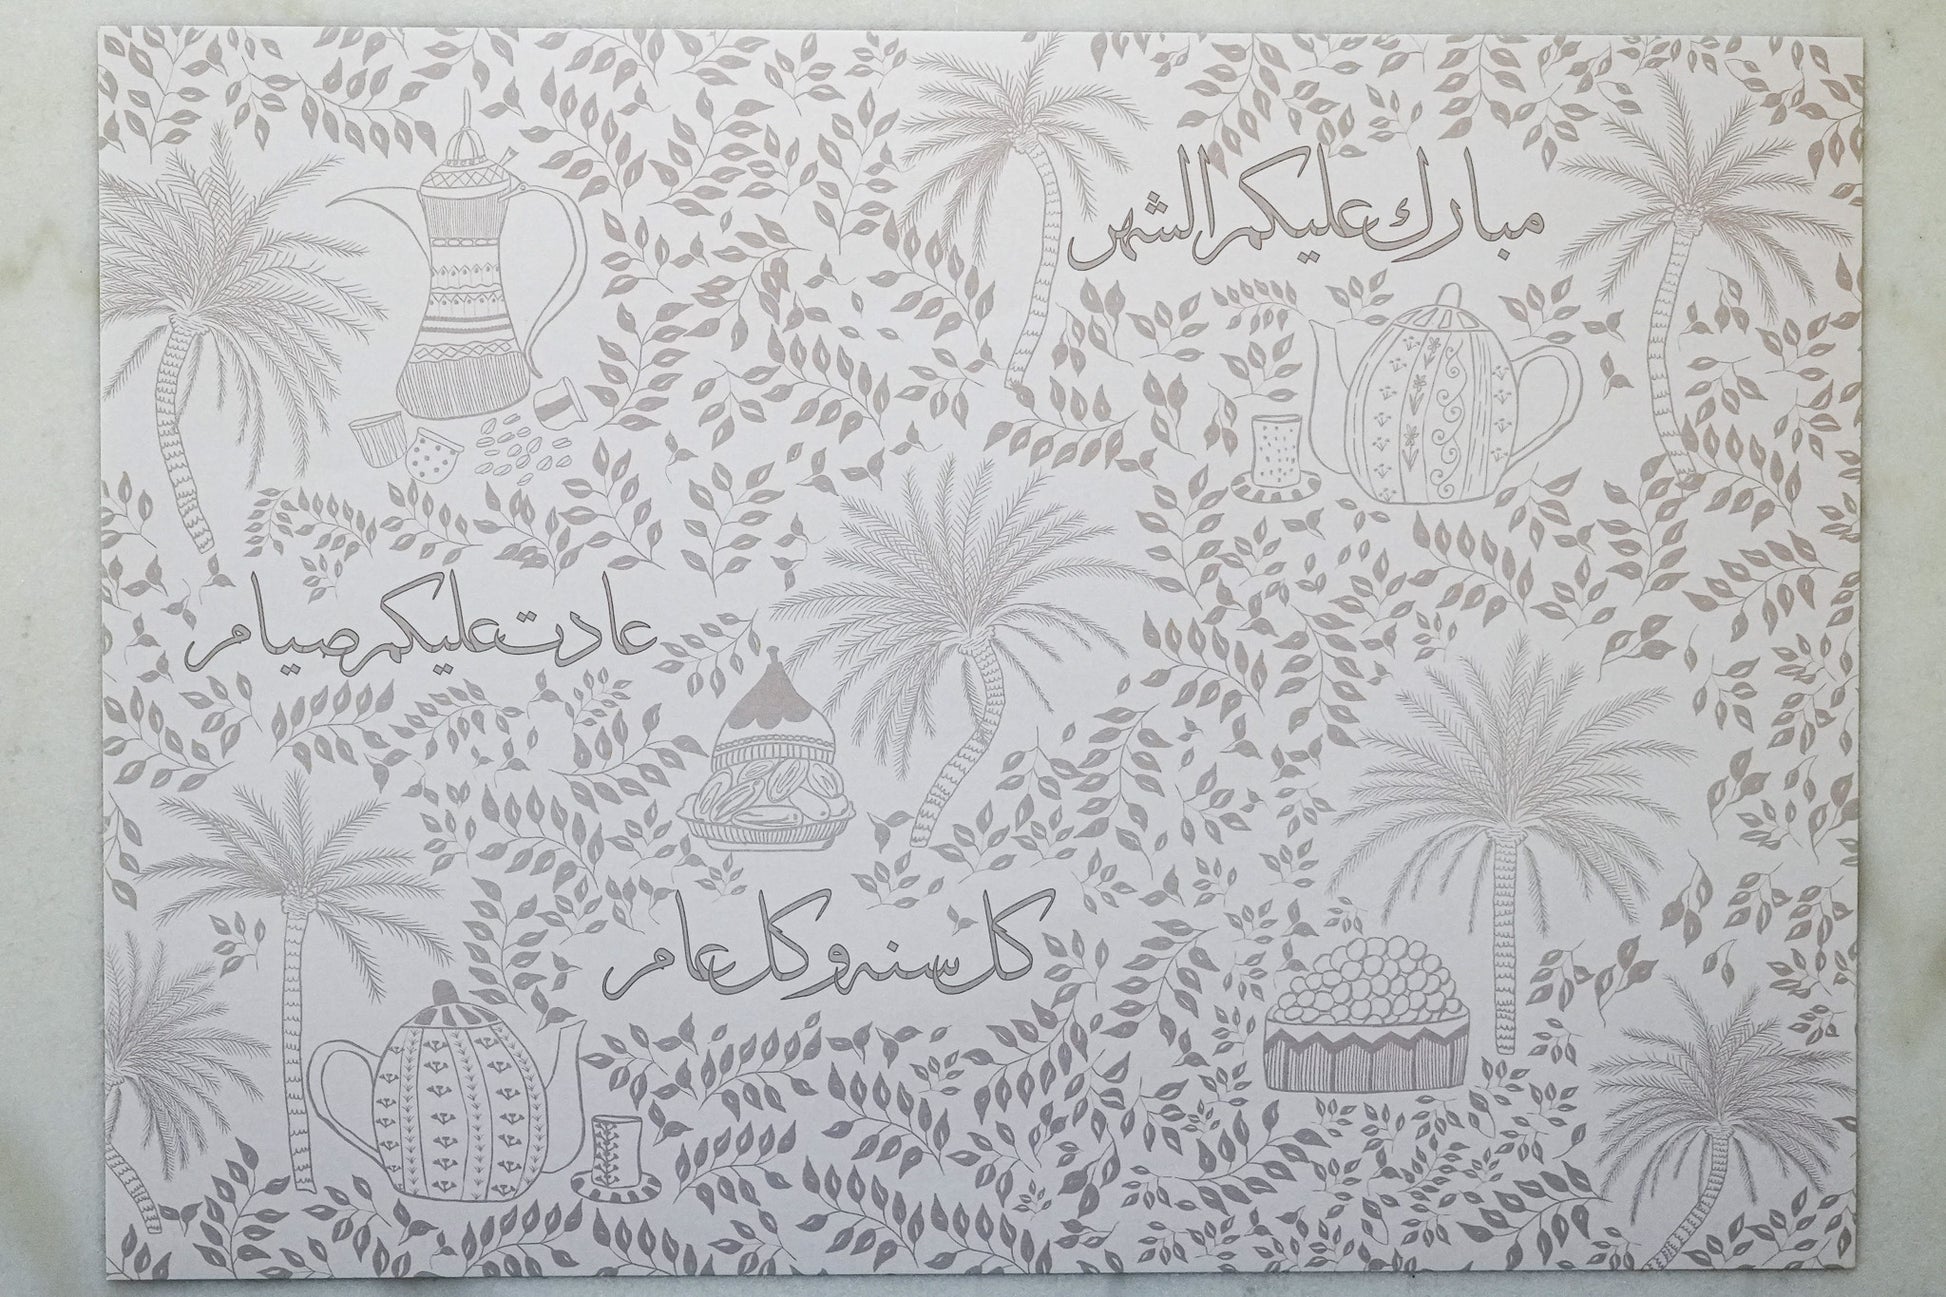 مبارك عليكم الشهر
عادت عليكم صيام
كل سنه وكل عام